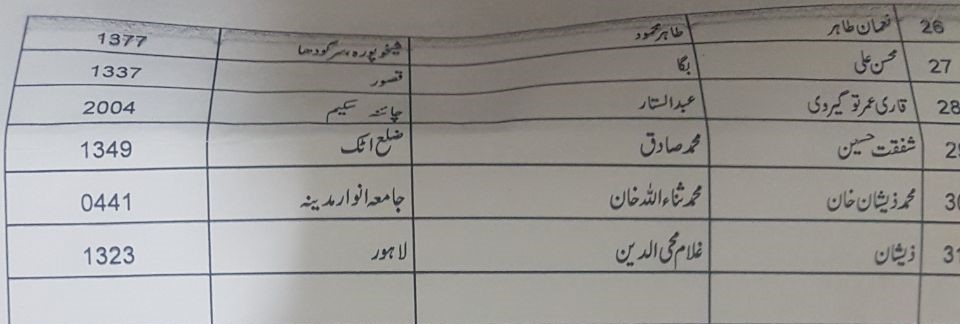 26 نعمان طاہر طاہر محمود شیخوپورہ، سرگودھا 1377
27 محسن علی بگا قصور 1337
28 قاری عمر توگیروی عبدالستار چائنہ سکیم 2004
محمد صادق شفقت حسین ضلع اٹک 1349
محمد ذیشان خان محمد ثناء اللہ خان جامعہ انوار مدینہ 0441
31 ذیشان غلام محی الدین لاہور 1323